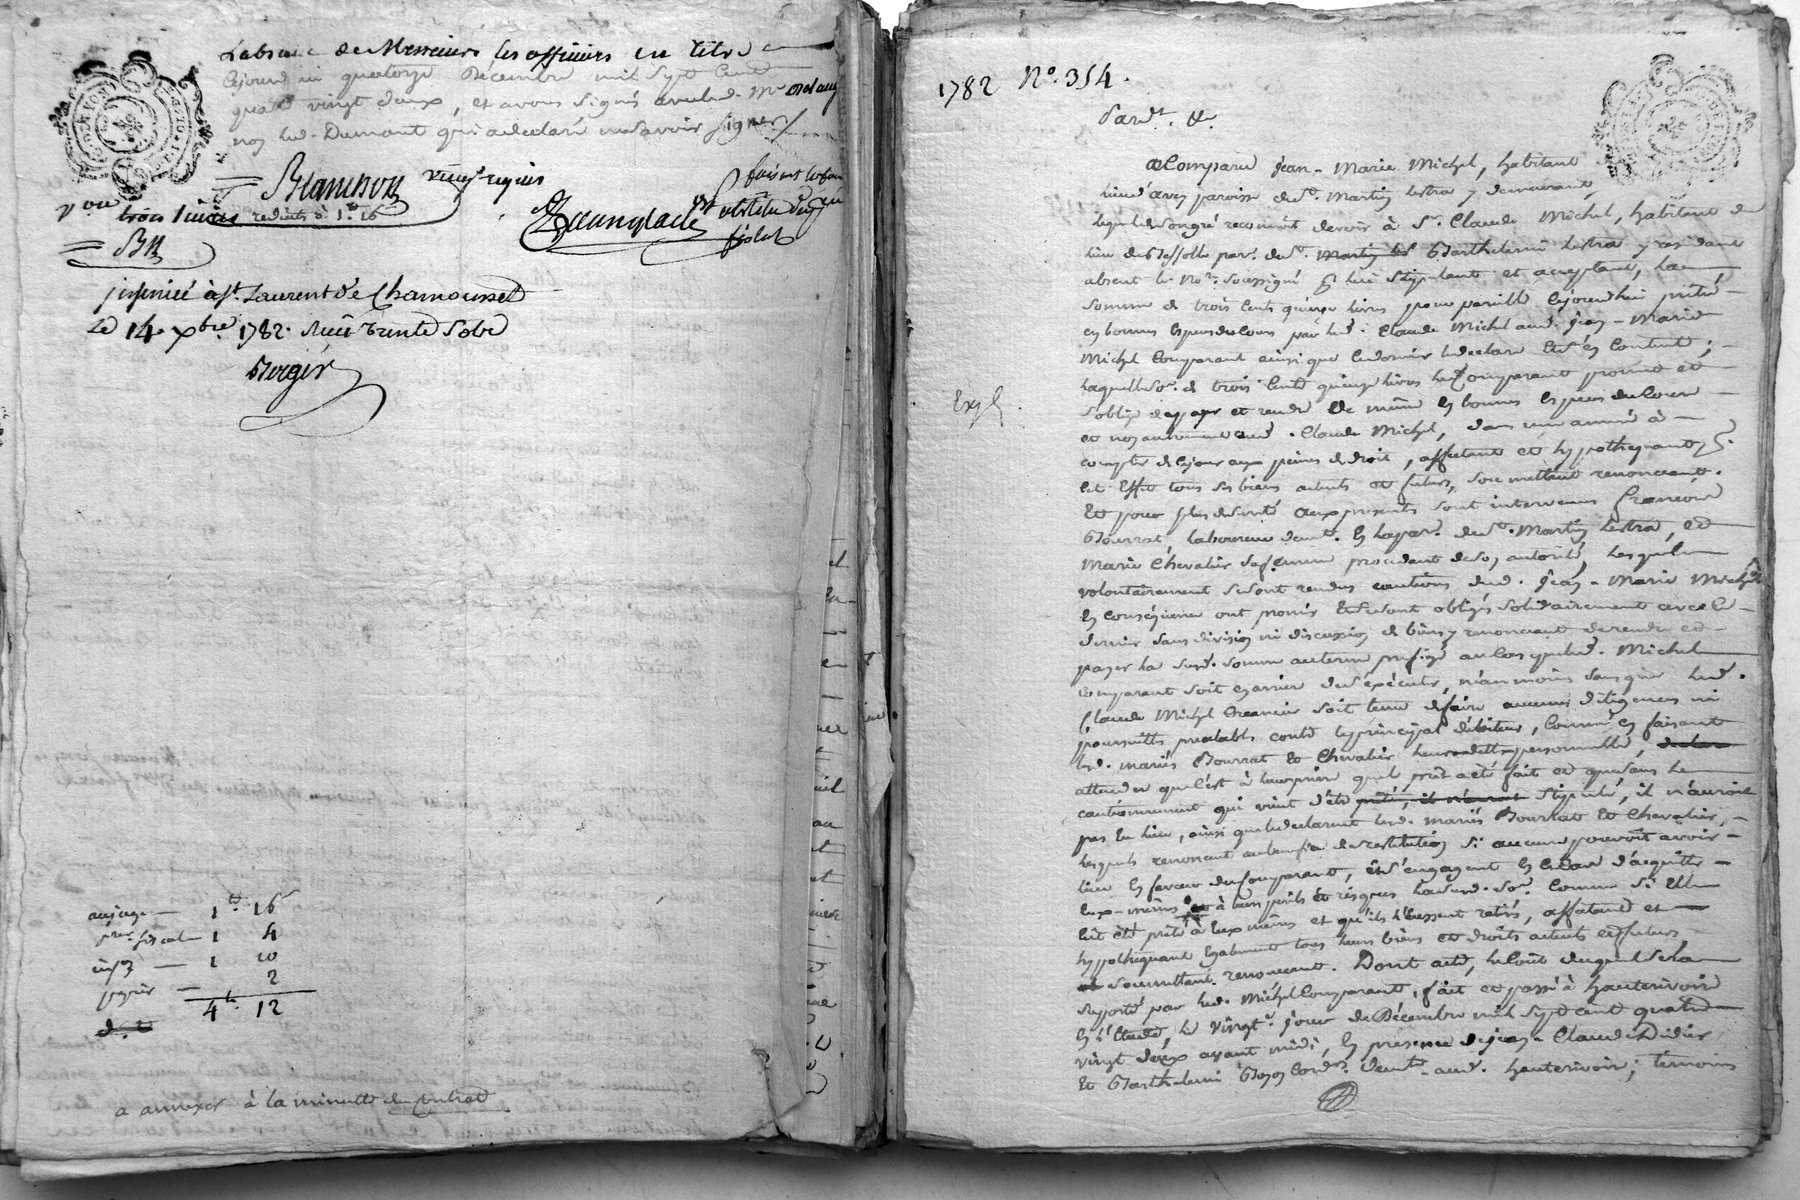 L'absence de Messieurs les officiers en titre
Cejourd'hui quatorze Décembre mil Sept Cent
quatre vingt deux, et avons signés avec led. Me
non led. Dumont qui a declaré ne savoir signer
Blanchon
vice gerent
trois livres
reduits à 1tt 16
BN
faisant
substitut du
fiscal
insinué à St. Laurent de Chamousset
Le 14e xbre 1782. Reçu trente sols
Berger
au juge — 1tt 16s
pror. fiscal — 1 4
1 10
papier — 2
4tt 12
a annexer à la minutte du Contrat
1782 No. 354.
Pardt. &c.
a Comparu jean-Marie Michel, habitant
lieu d'avez paroisse de St. Martin lestra y demeurant,
lequel de son gré reconnoit devoir à Sr. Claude Michel, habitant du
lieu de par. de St. Barthelemi lestra y residant
absent le Nore. soussigné pr. lui stipulant et acceptant, la
somme de trois cents quinze livres pour pareille cejourd'hui prêté
en bonnes especes de cours par led. Claude Michel aud. jean-Marie
Michel Comparant ainsi que ce dernier le declare et s'en contente;
laquelle so. de trois cents quinze livres led. Comparant promet et
s'oblige de payer et rendre de même en bonnes especes de cours
Expé
et non autrement aud. Claude Michel, dans une année à
compter de ce jour aux peines de droit, affectant et hypothequant p.
cet effet tous ses biens actuels et futurs, soumettant renonceant.
Et pour plus de sureté aux presentes sont intervenus françois
Bourrat laboureur demt. en la par. de St. Martin lestra, et
Marie Chevalier sa femme procedant de son autorité, lesquels
volontairement se sont rendus cautions dud. jean-Marie Michel
en conséquence ont promis et se sont obligés solidairement avec ce
dernier sans division ni discussion de biens y renonceant de rendre et
payer la susd. somme au terme prefigé au cas que led. Michel
comparant soit en arriere de s'exécuter, néanmoins sans que led.
Claude Michel Creancier soit tenu de faire aucunes diligences ni
poursuittes prealables contre le principal débiteur, comme en faisant
lesd. mariés Bourrat et Chevalier leur dette personnelle,
attendu que c'est à leur priere que le prêt a été fait et que sans le
cautionnement qui vient d'être prêté, il n'auroit stipulé, il n'auroit
pas eu lieu, ainsi que le declarent lesd. mariés Bourrat et Chevalier,
lesquels renonceant au benefice de restitution si aucun pouvoit avoir
lieu en faveur du Comparant, et s'engagent en ce cas d'acquitter
eux-mêmes à leurs perils et risques la susd. so. comme si elle
eut été prêté à eux mêmes et qu'ils l'eussent retirés, affectant et
hypothequant également tous leurs biens et droits actuels et futurs
soumettant. renonceant. Dont acte, le coût duquel sera
supporté par led. Michel Comparant. fait et passé à hauterivoire
en l'Etude, le vingte. jour de Décembre mil sept cent quatre
vingt deux avant midi, en presence de jean-Claude Didier
et Barthelemi demts. aud. hauterivoire; temoins